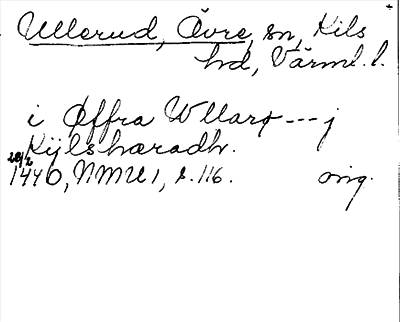 Ullerud, Övre, sn, Kils
hd, Värml. l.
i Øffra Wllarø --- j
Kijlshæradh.
28/2
1440, NMU 1, s. 116. orig.